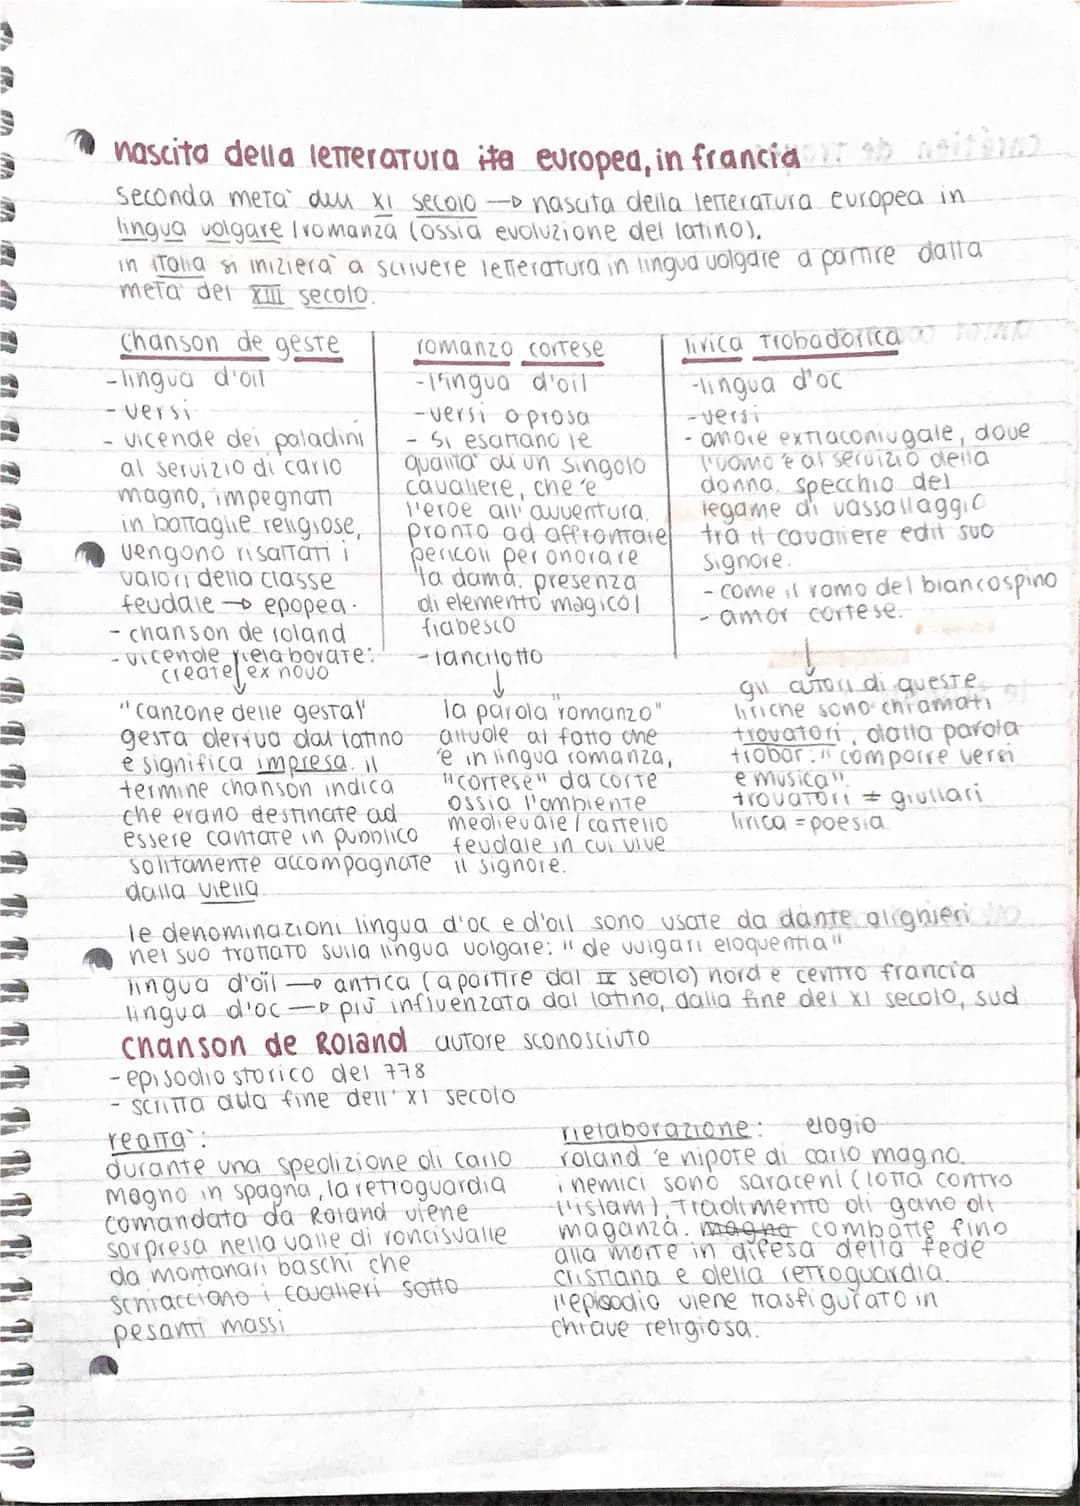 nascita della letteratura ita europea, in francia
seconda metà dell XI secolo → nascita della letteratura europea in
lingua volgare / romanza (ossia evoluzione del latino).
in italia si inizierà a scrivere letteratura in lingua volgare a partire dalla
metà del XIII secolo.
chanson de geste
- lingua d'oil
- versi
- vicende dei paladini
al servizio di carlo
magno, impegnati
in battaglie religiose,
vengono risaltati i
valori della classe
feudale → epopea.
- chanson de roland
- vicende rielaborate:
create ex novo
"canzone delle gesta"
gesta deriva dal latino
e significa impresa. il
termine chanson indica
che erano destinate ad
essere cantate in pubblico
solitamente accompagnate
dalla viella
romanzo cortese
- lingua d'oil
- versi o prosa
- si esaltano le
qualità di un singolo
cavaliere, che è
l'eroe all'avventura.
pronto ad affrontare
pericoli per onorare
la dama. presenza
di elemento magico/
fiabesco
- lancilotto
↓
la parola "romanzo"
allude al fatto che
è in lingua romanza,
"cortese" da corte
ossia l'ambiente
medievale / castello
feudale in cui vive
il signore.
lirica trobadorica
- lingua d'oc
- versi
- amore extraconiugale, dove
l'uomo è al servizio della
donna. specchio del
legame di vassallaggio
tra il cavaliere ed il suo
signore.
- come il ramo del biancospino
- amor cortese.
↓
gli autori di queste
liriche sono chiamati
trovatori, dalla parola
trobar: "comporre versi
e musica".
trovatori ≠ giullari
lirica = poesia
le denominazioni lingua d'oc e d'oil sono usate da dante alighieri
nel suo trattato sulla lingua volgare: "de vulgari eloquentia"
lingua d'oïl → antica (a partire dal IX secolo) nord e centro francia
lingua d'oc → più influenzata dal latino, dalla fine del XI secolo, sud
chanson de Roland autore sconosciuto
- episodio storico del 778
- scritta alla fine dell' XI secolo
realtà:
durante una spedizione di carlo
magno in spagna, la retroguardia
comandata da Roland viene
sorpresa nella valle di roncisvalle
da montanari baschi che
schiacciano i cavalieri sotto
pesanti massi
rielaborazione: elogio
roland è nipote di carlo magno.
i nemici sono saraceni (lotta contro
l'islam). Tradimento di gano di
maganza. magno combatte fino
alla morte in difesa della fede
cristiana e della retroguardia.
l'episodio viene trasfigurato in
chiave religiosa.